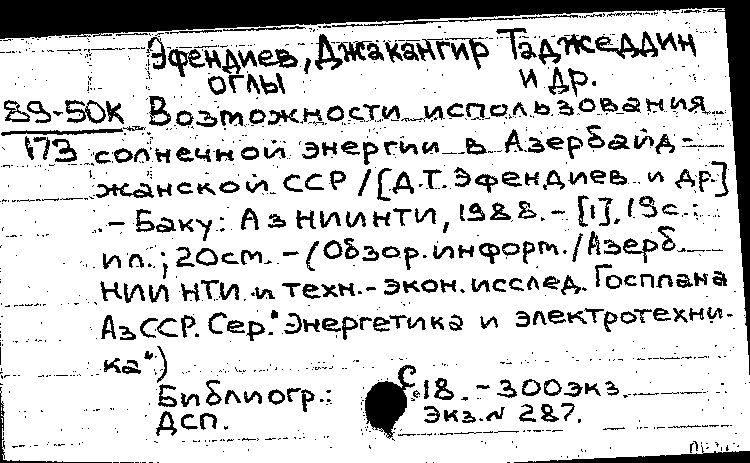 Эфендиев, Джакангир Таджеддин
оглы и др.
89-50К Возможности использования
173 солнечной энергии в Азербайд-
жанской ССР / [Д.Т. Эфендиев и др.]
. - Баку: АзНИИНТИ, 1988. - [1], 19с.:
ил.; 20см. - (Обзор. информ. / Азерб.
НИИ НТИ и техн.-экон. исслед. Госплана
АзССР. Сер. "Энергетика и электротехни-
ка")
Библиогр.: с. 18. - 300экз.
ДСП. Экз. N 287.